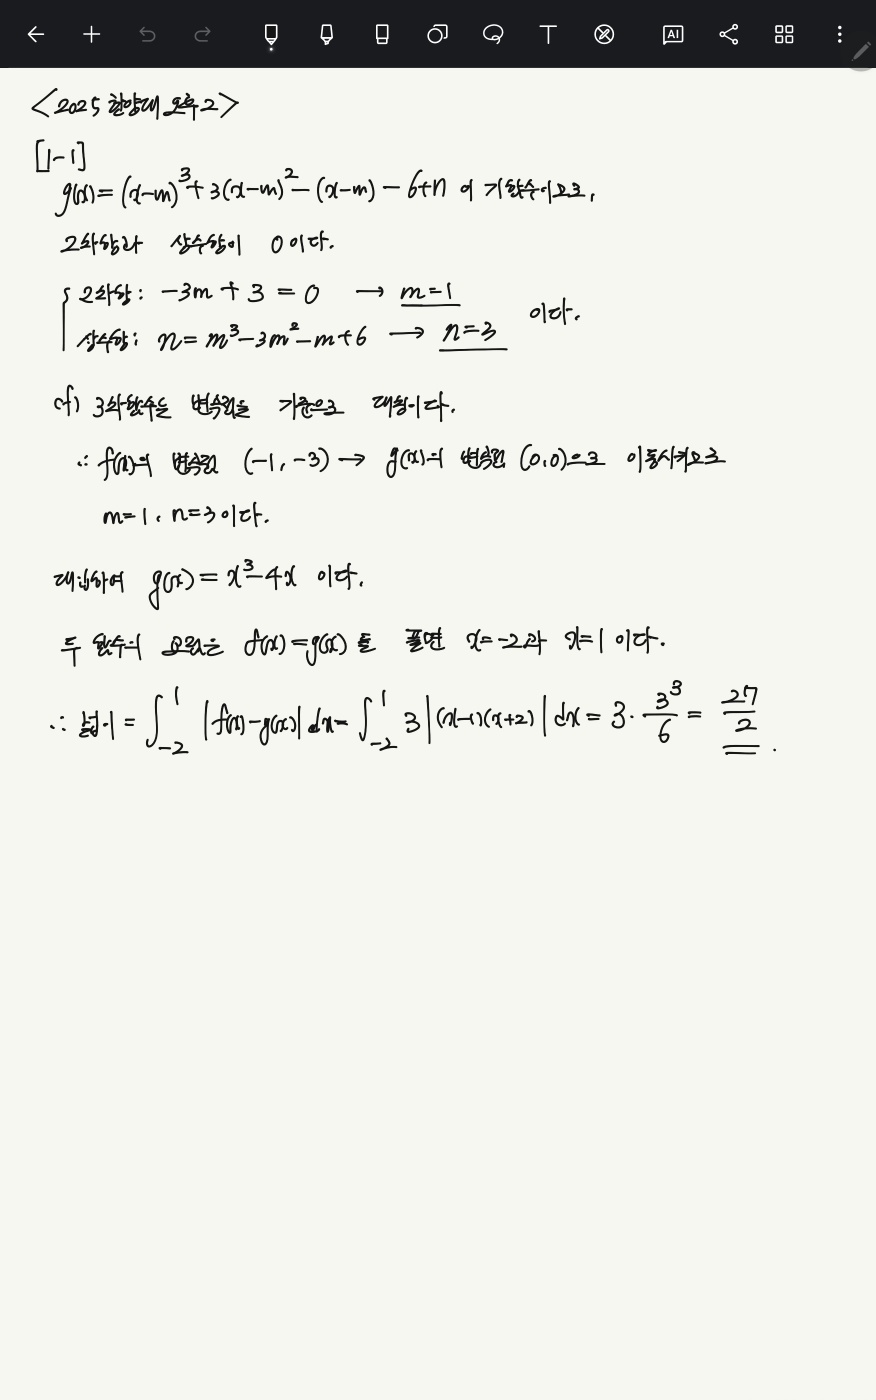 <2025 한양대 오후2>
[1-1]
g(x) = (x-m)³ + 3(x-m)² - (x-m) - 6+n 이 기함수이므로,
2차항과 상수항이 0이다.
2차항: -3m + 3 = 0 → m=1
상수항: n = m³-3m²-m+6 → n=3 이다.
cf) 3차함수는 변곡점을 기준으로 대칭이다.
∴ f(x)의 변곡점 (-1, -3) → g(x)의 변곡점 (0,0)으로 이동시키므로
m=1, n=3이다.
대입하여 g(x) = x³-4x 이다.
두 함수의 교점은 f(x)=g(x)를 풀면 x=-2과 x=1이다.
∴ 넓이 = ∫₋₂¹ |f(x)-g(x)| dx = ∫₋₂¹ 3|(x-1)(x+2)| dx = 3·3³/6 = 27/2.
AI
T